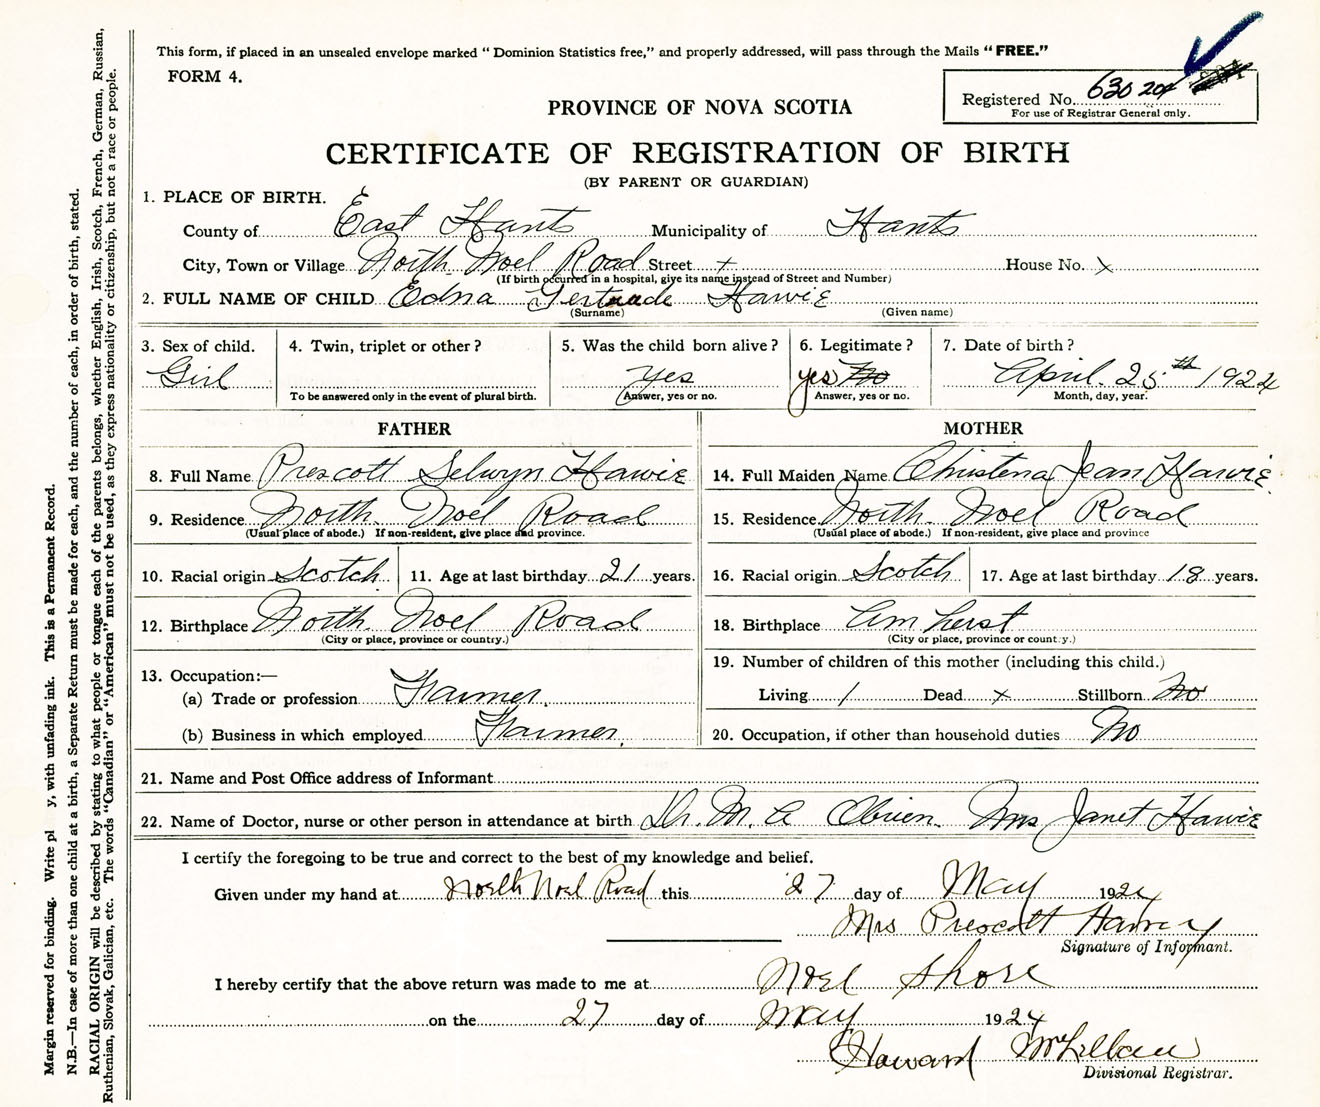 This form, if placed in an unsealed envelope marked "Dominion Statistics free," and properly addressed, will pass through the Mails "FREE."
FORM 4.
Registered No. 630 204
For use of Registrar General only.
PROVINCE OF NOVA SCOTIA
CERTIFICATE OF REGISTRATION OF BIRTH
(BY PARENT OR GUARDIAN)
1. PLACE OF BIRTH.
County of East Hants Municipality of Hants
City, Town or Village North Noel Road Street + House No. x
(If birth occurred in a hospital, give its name instead of Street and Number)
2. FULL NAME OF CHILD Edna Gertrude Harvie
(Surname) (Given name)
3. Sex of child. 4. Twin, triplet or other? 5. Was the child born alive? 6. Legitimate? 7. Date of birth?
Girl yes yes No April 25th 1924
To be answered only in the event of plural birth. Answer, yes or no. Answer, yes or no. Month, day, year.
FATHER MOTHER
8. Full Name Prescott Selwyn Harvie 14. Full Maiden Name Christena Jean Harvie
9. Residence North Noel Road 15. Residence North Noel Road
(Usual place of abode.) If non-resident, give place and province. (Usual place of abode.) If non-resident, give place and province
10. Racial origin Scotch 11. Age at last birthday 21 years. 16. Racial origin Scotch 17. Age at last birthday 18 years.
12. Birthplace North Noel Road 18. Birthplace Amherst
(City or place, province or country.) (City or place, province or country.)
13. Occupation:— 19. Number of children of this mother (including this child.)
(a) Trade or profession Farmer. Living 1 Dead x Stillborn No
(b) Business in which employed Farmer. 20. Occupation, if other than household duties No
21. Name and Post Office address of Informant
22. Name of Doctor, nurse or other person in attendance at birth Dr. M. A Obrien Mrs Janet Harvie
I certify the foregoing to be true and correct to the best of my knowledge and belief.
Given under my hand at North Noel Road this 27 day of May 1924
Mrs Prescott Harvey
Signature of Informant.
I hereby certify that the above return was made to me at Noel Shore
on the 27 day of May 1924
Howard
Divisional Registrar.
Margin reserved for binding. Write pl y, with unfading ink. This is a Permanent Record.
N.B.—In case of more than one child at a birth, a Separate Return must be made for each, and the number of each, in order of birth, stated.
RACIAL ORIGIN will be described by stating to what people or tongue each of the parents belongs, whether English, Irish, Scotch, French, German, Russian,
Ruthenian, Slovak, Galician, etc. The words "Canadian" or "American" must not be used, as they express nationality or citizenship, but not a race or people.